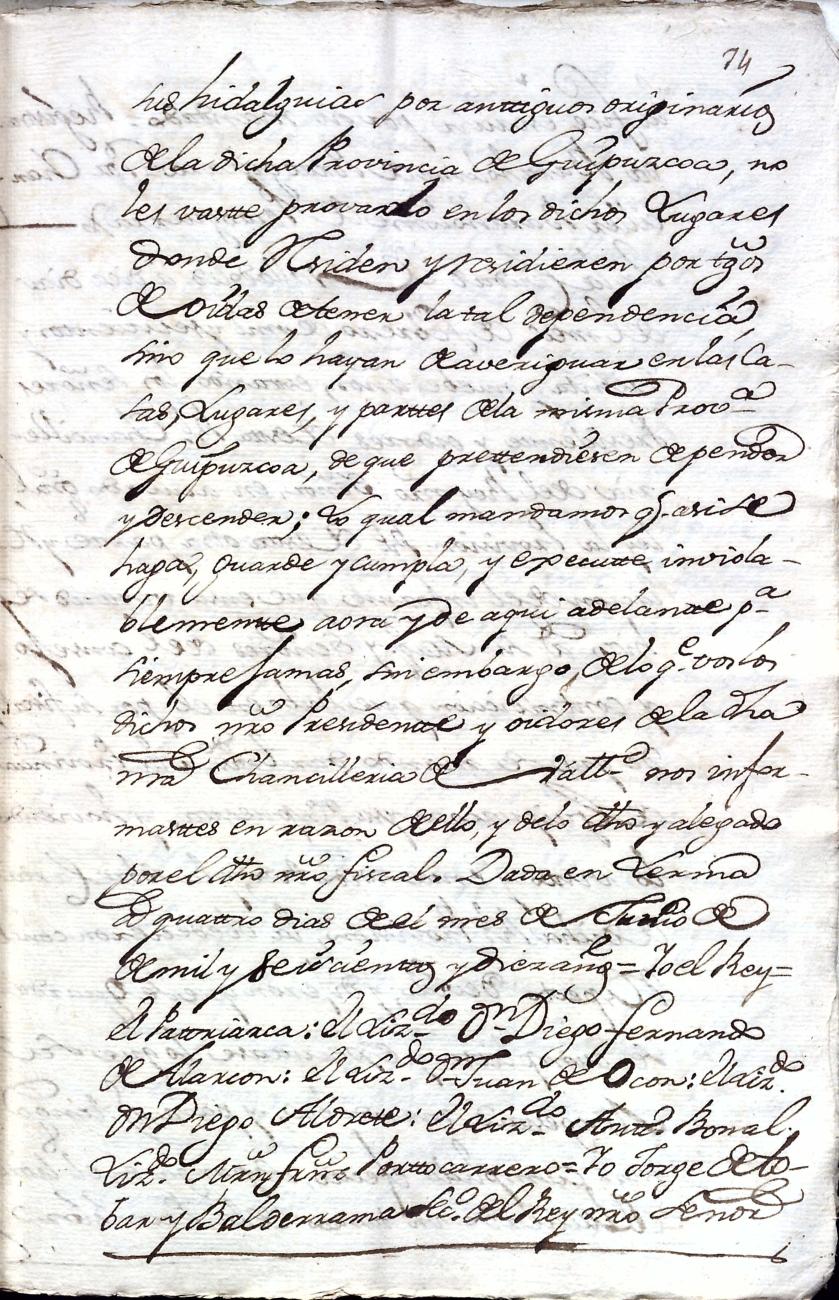 74
sus hidalguias por antiguos originarios
de la dicha Provincia de Guipuzcoa, no
les vastte provarlo en los dichos Lugares
donde Residen y residieren por tgos
de oidas de tener la tal dependencia,
sino que lo hayan de averiguar en las Ca-
sas, Lugares, y parttes de la misma Prov.a
de Guipuzcoa, de que prettendiesen depender
y Descender; Lo qual mandamos q. asi se
haga, guarde y cumpla, y executte inviola-
blementte aora y de aqui adelantte p.a
siempre Jamas, sin embargo, de lo q.e vos los
dichos nro Presidentte y oidores de la dha
nra Chancilleria de Vall.d nos infor-
masttes en razon de ello, y de lo dho y alegado
por el dho nro fiscal. Dada en Lerma
a quattro dias de el mes de Junio de
de mil y Seiscientos y diez años = Yo el Rey =
el Pattriarca: el Liz.do Dn Diego fernando
de Alarcon: el Liz.do Dn Juan de Ocon: el Liz.do
Dn Diego Aldrete: el Liz.do Antt.o Bonal.
Liz.do Mrn frnz Porttocarrero = Yo Jorge de to-
bar y Balderrama S.o del Rey nro Señor